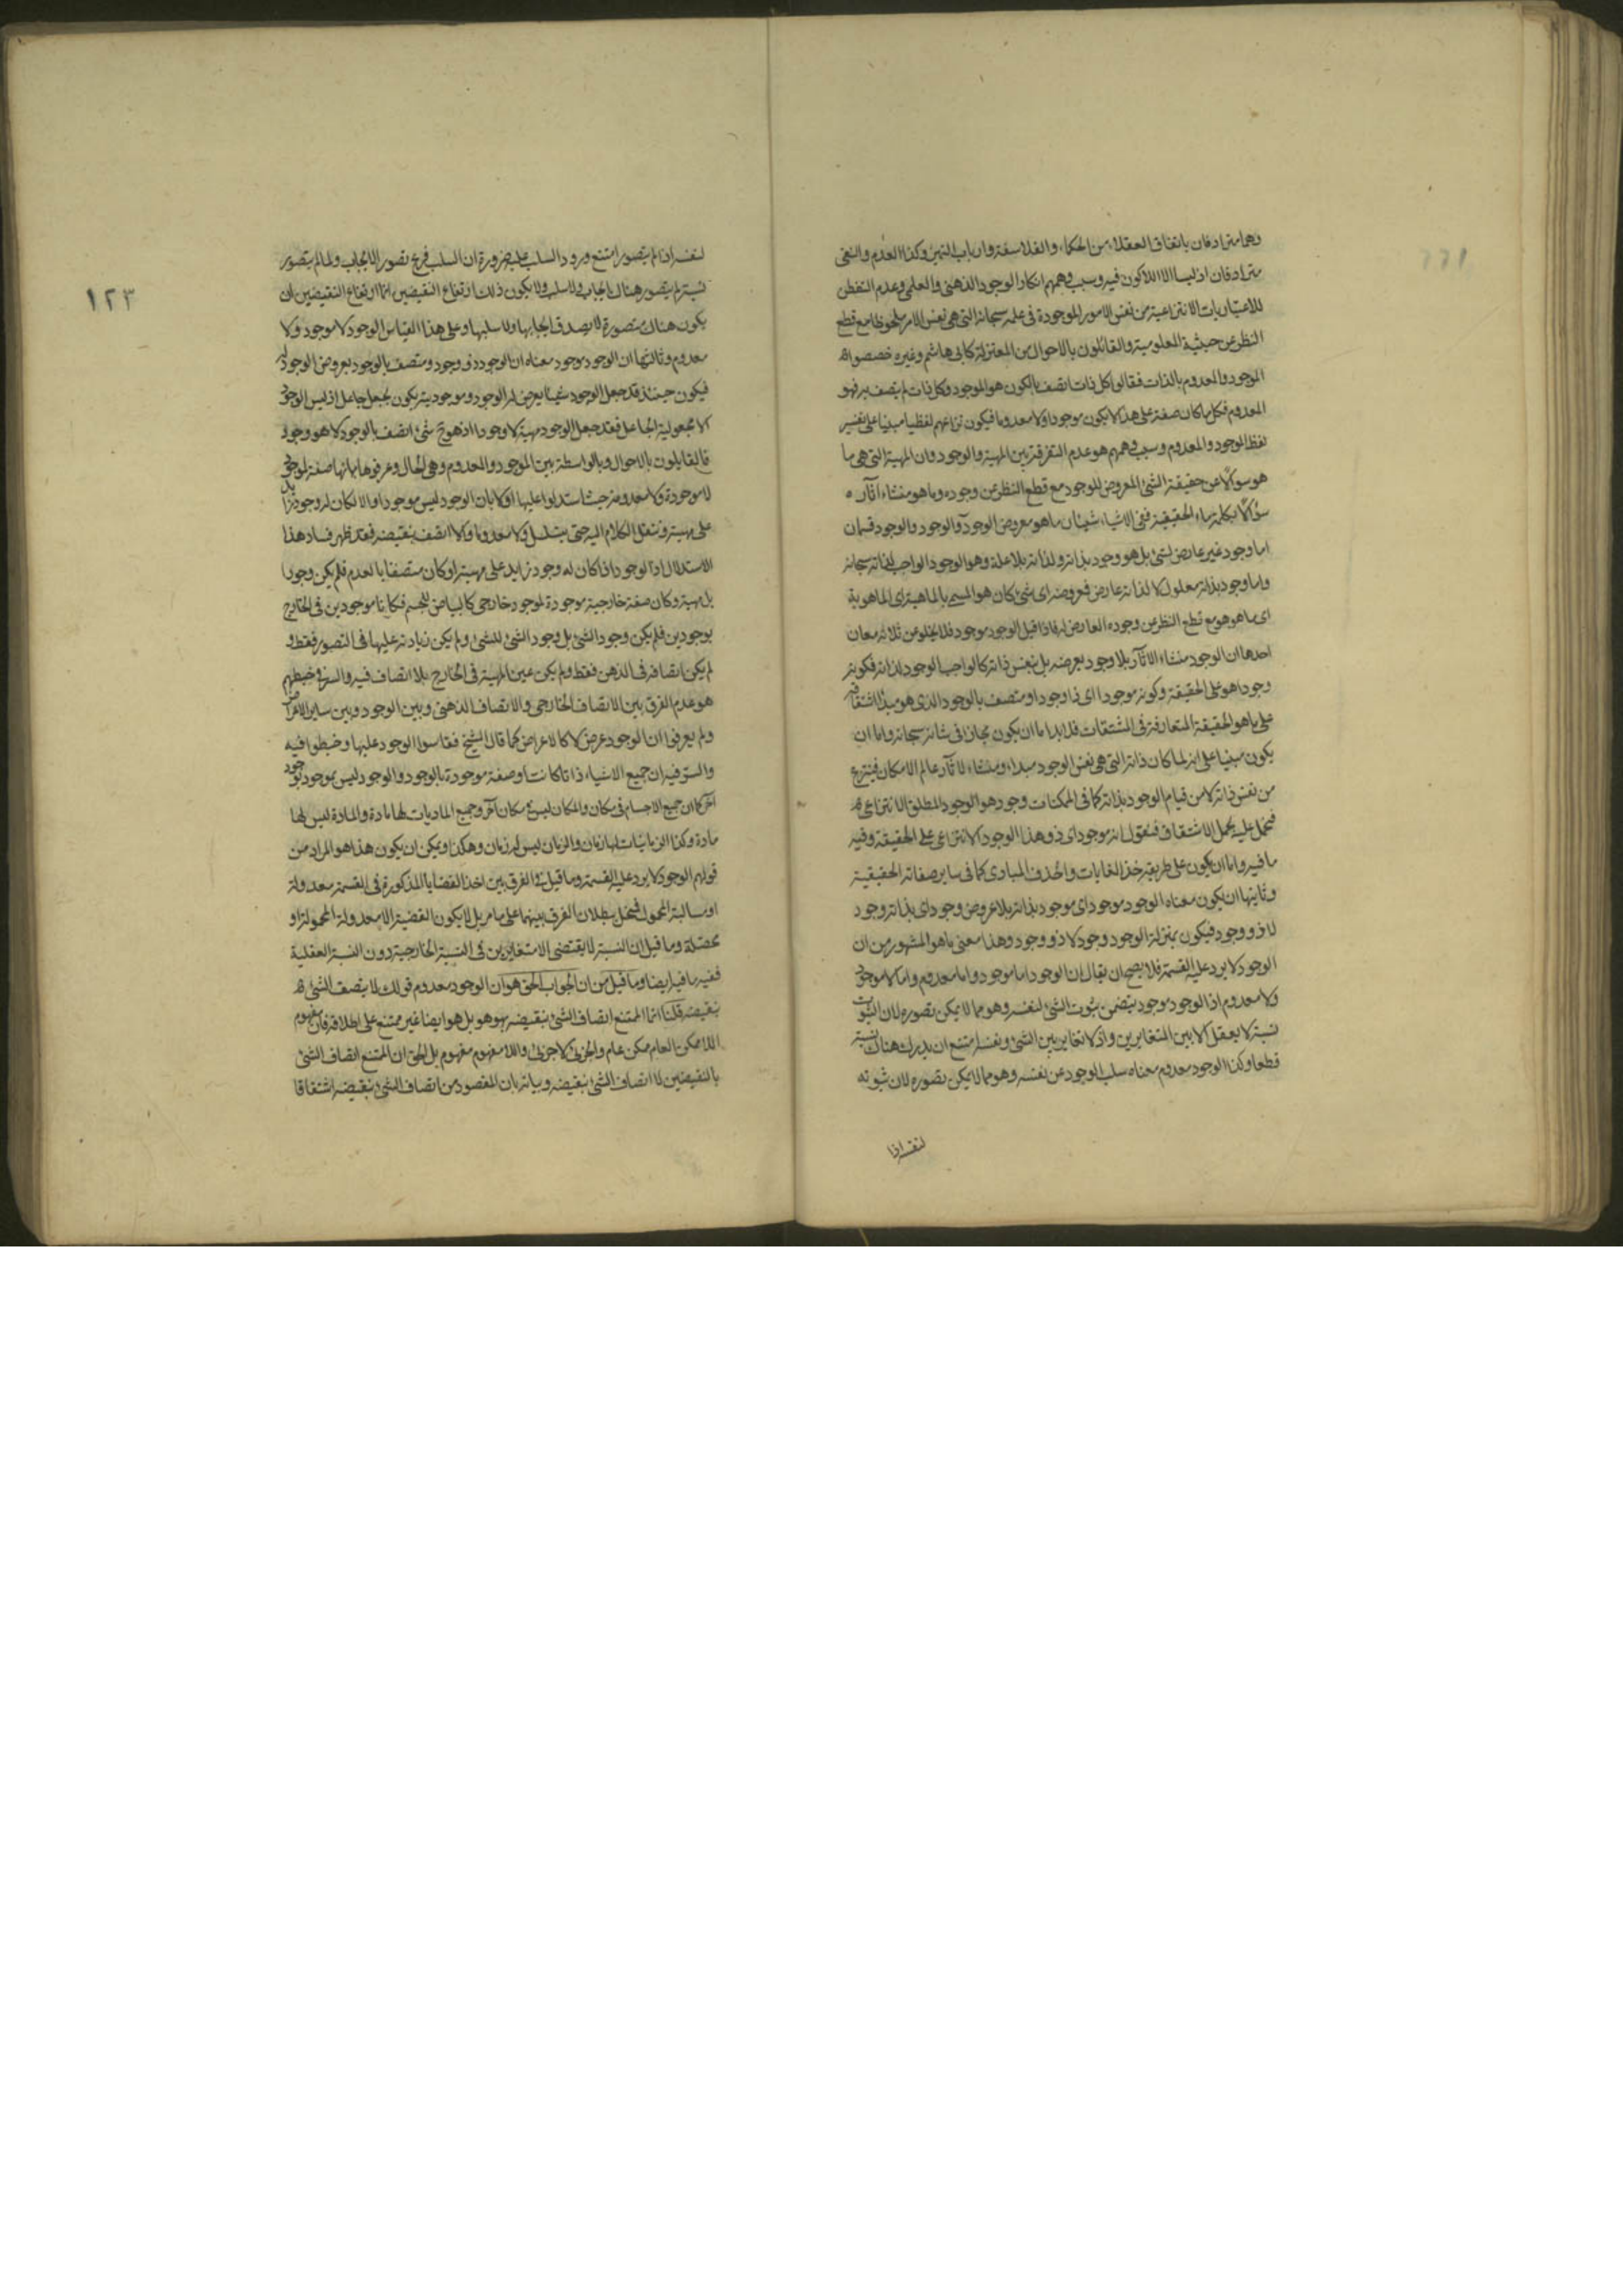 وهما مترادفان باتفاق العقلاء من الحكماء والفلاسفة وارباب التميز وكذا العدم والنفى
مترادفان اذ ليسا الا اللاكون فيه وسبب وهمهم انكار الوجود الذهنى والعلمى وعدم التفطن
للاعتباريات الانتزاعية من نفس الامور الموجودة فى علمه سبحانه التى هى نفس الامر ملحوظا مع قطع
النظر عن حيثية المعلومية والقائلون بالاحوال من المعتزلة كابى هاشم وغيره خصصوا
الموجود والمعدوم بالذات فقالوا كل ذات اتصف بالكون هو الموجود وكل ذات لم يتصف به فهو
المعدوم فكل ما كان صفة على هذا لا يكون موجودا ولا معدوما فيكون نزاعهم لفظيا مبنيا على تفسير
لفظ الموجود والمعدوم وسبب وهمهم هو عدم التفرقة بين المهية والوجود وان المهية التى هى ما
هو سؤالا عن حقيقة الشئ المعروض للوجود مع قطع النظر عن وجوده وما هو منشاء آثاره
سؤالا بكلمة ماء الحقيقية ففى الاشياء شيئان ما هو معروض الوجود والوجود والوجود قسمان
اما وجود غير عارض لشئ بل هو وجود بذاته ولذاته بلا علة وهو الوجود الواجب لذاته سبحانه
واما وجود بذاته معلول لا لذاته عارض فعروضه اى شئ كان هو المسمى بالماهية اى الماهوية
اى ما هو هو مع قطع النظر عن وجوده العارض له فاذا قيل الوجود موجود فلا يخلو من ثلاثة معان
احدها ان الوجود منشاء الآثار بلا وجود يعرضه بل بنفس ذاته كالواجب الوجود لذاته فكونه
وجودا هو على الحقيقة وكونه موجودا اى ذا وجود او متصف بالوجود الذى هو مبدأ اشتقاقه
على ما هو الحقيقة المتعارفة فى المشتقات فلا بد اما ان يكون مجازا فى شانه سبحانه واما ان
يكون مبنيا على انه لما كان ذاته التى هى نفس الوجود مبداء ومنشاء لآثار عالم الامكان فينتزع
من نفس ذاته لا من قيام الوجود بذاته كما فى الممكنات وجود هو الوجود المطلق الانتزاعى
فيحمل عليه بحمل الاشتقاق فنقول انه موجود اى ذو هذا الوجود الانتزاعى على الحقيقة وفيه
ما فيه واما ان يكون على طريقة خذ الغايات واحذف المبادى كما فى ساير صفاته الحقيقية
وثانيها ان يكون معناه الوجود موجود اى موجود بذاته بلا عروض وجود اى بذاته وجود
لا ذو وجود فيكون بمنزلة الوجود وجود لا ذو وجود وهذا معنى ما هو المشهور من ان
الوجود لا يرد عليه القسمة فلا يصح ان يقال ان الوجود اما موجود واما معدوم واما لا موجود
ولا معدوم اذ الوجود موجود يتضمن ثبوت الشئ لنفسه وهو مما لا يمكن تصوره لان الثبوت
نسبة لا يعقل الا بين المتغايرين واذ لا تغاير بين الشئ ونفسه امتنع ان يدرك هناك نسبة
قطعا وكذا الوجود معدوم معناه سلب الوجود عن نفسه وهو مما لا يمكن تصوره لان ثبوته
لنفسه اذا
١٢٣
لنفسه اذا لم يتصور امتنع ورود السلب عليه ضرورة ان السلب فرع تصور الايجاب ولما لم يتصور
نسبة لم يتصور هناك ايجاب ولا سلب ولا يكون ذلك ارتفاع النقيضين انما ارتفاع النقيضين ان
يكون هناك متصورة لا يصدق ايجابها ولا سلبها وعلى هذا القياس الوجود لا موجود ولا
معدوم وثالثها ان الوجود موجود معناه ان الوجود ذو وجود ومتصف بالوجود بعروض الوجود له
فيكون حينئذ قد جعل الوجود شيئا يعرض له الوجود وموجوديته يكون بجعل جاعل اذ ليس الوجود
الا مجعولية الجاعل فقد جعل الوجود مهية لا وجودا اذ هو ح شئ اتصف بالوجود لا هو وجود
فالقايلون بالاحوال وبالواسطة بين الموجود والمعدوم وهى الحال وعرفوها بانها صفة لموجود
لا موجودة ولا معدومة حيث استدلوا عليها اولا بان الوجود ليس موجودا والا لكان له وجود زايد
على مهيته وننقل الكلام اليه حتى يتسلسل ولا معدوما والا اتصف بنقيضه فقد ظهر فساد هذا
الاستدلال اذ الوجود اذا كان له وجود زايد على مهيته او كان متصفا بالعدم فلم يكن وجودا
بل مهية وكان صفة خارجية موجودة لوجود خارجى كالبياض للجسم فكانا موجودين فى الخارج
بوجودين فلم يكن وجود الشئ بل وجود الشئ للشئ ولم يكن زيادته عليها فى التصور فقط و
لم يكن اتصافه فى الذهن فقط ولم يكن عين المهية فى الخارج بلا اتصاف فيه والسر فى خبطهم
هو عدم الفرق بين الاتصاف الخارجى والاتصاف الذهنى وبين الوجود وبين ساير الاعراض
ولم يعرفوا ان الوجود عرض لا كالاعراض كما قال الشيخ فقاسوا الوجود عليها وخبطوا فيه
والسر فيه ان جميع الاشياء ذاتا كانت او صفة موجودة بالوجود والوجود ليس بموجود بوجود
آخر كما ان جميع الاجسام فى مكان والمكان ليس فى مكان آخر وجميع الماديات لها مادة والمادة ليس لها
مادة وكذا الزمانيات لها زمان والزمان ليس له زمان وهكذا ويمكن ان يكون هذا هو المراد من
قولهم الوجود لا يرد عليه القسمة وما قيل فى الفرق بين اخذ القضايا المذكورة فى القسمة معدولة
او سالبة المحمول فيحمل ببطلان الفرق بينهما على ما مر بل لا يكون القضية الا معدولة المحمول او
محصلة وما قيل ان النسبة لا يقتضى الا متغايرين فى النسبة الخارجية دون النسبة العقلية
ففيه ما فيه ايضا وما قيل من ان الجواب الحق هو ان الوجود معدوم قولك لا يتصف الشئ
بنقيضه قلنا انما الممتنع اتصاف الشئ بنقيضه بهو هو بل هو ايضا غير ممتنع على اطلاقه فان مفهوم
اللاممكن العام ممكن عام والجزئى لا جزئى واللامفهوم مفهوم بل الحق ان الممتنع اتصاف الشئ
بالنقيضين لا اتصاف الشئ بنقيضه وبيانه بان المقصود من اتصاف الشئ بنقيضه اشتقاقا